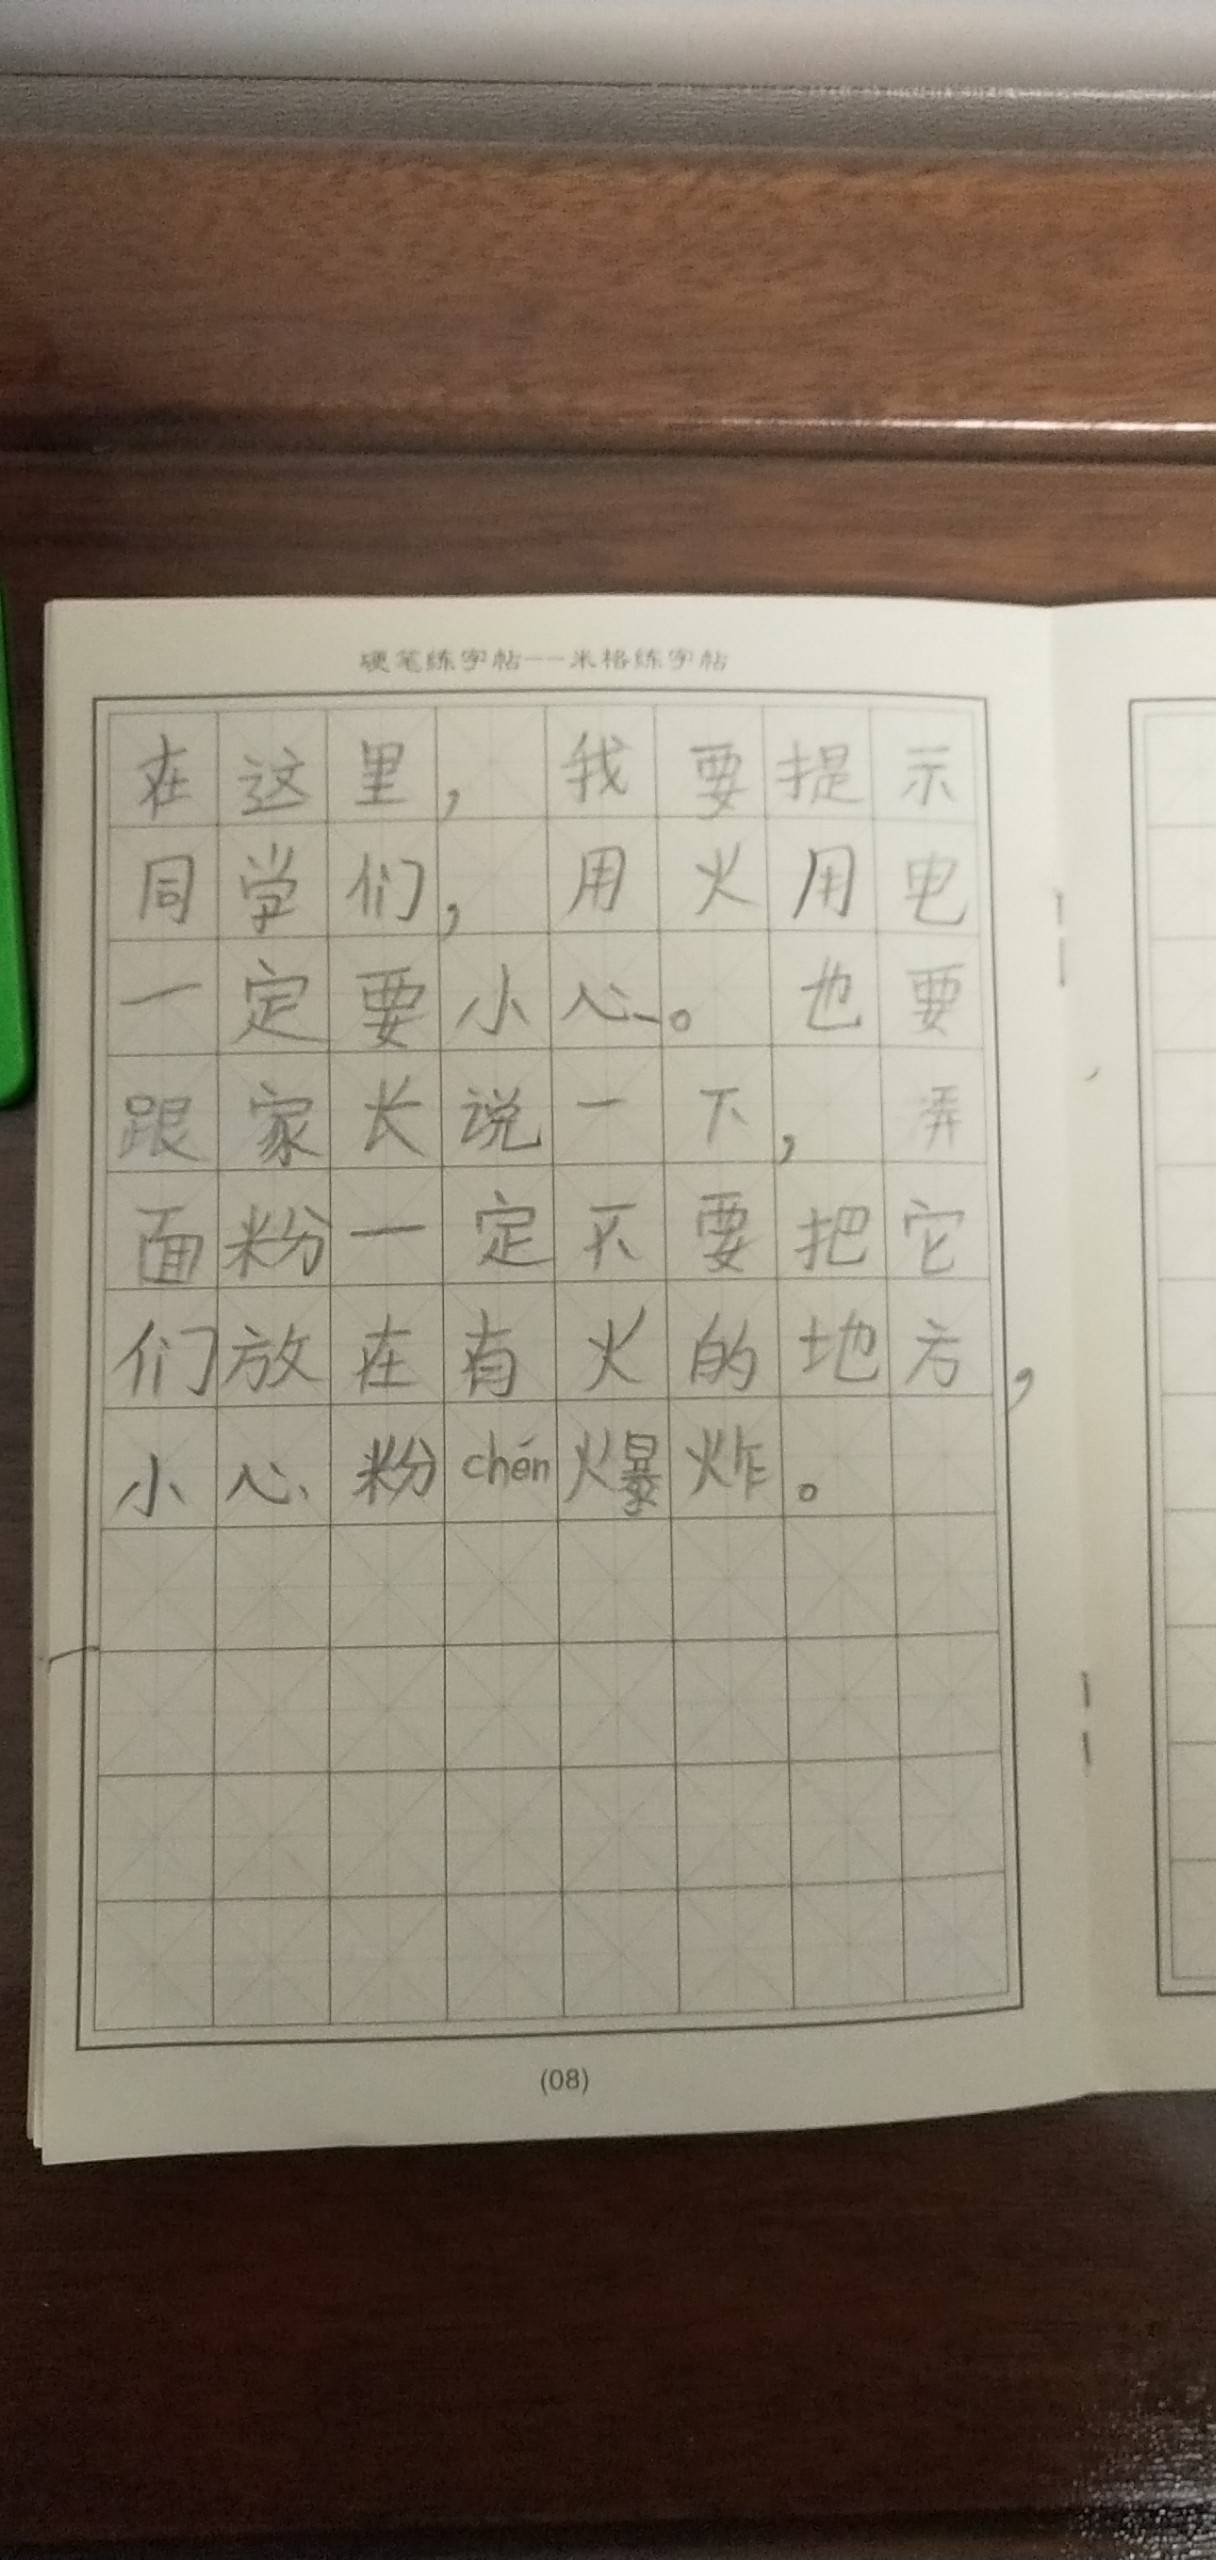 硬笔练字帖--米格练字帖
在这里，我要提示
同学们，用火用电
一定要小心。也要
跟家长说一下，弄
面粉一定不要把它
们放在有火的地方，
小心粉chén爆炸。
(08)